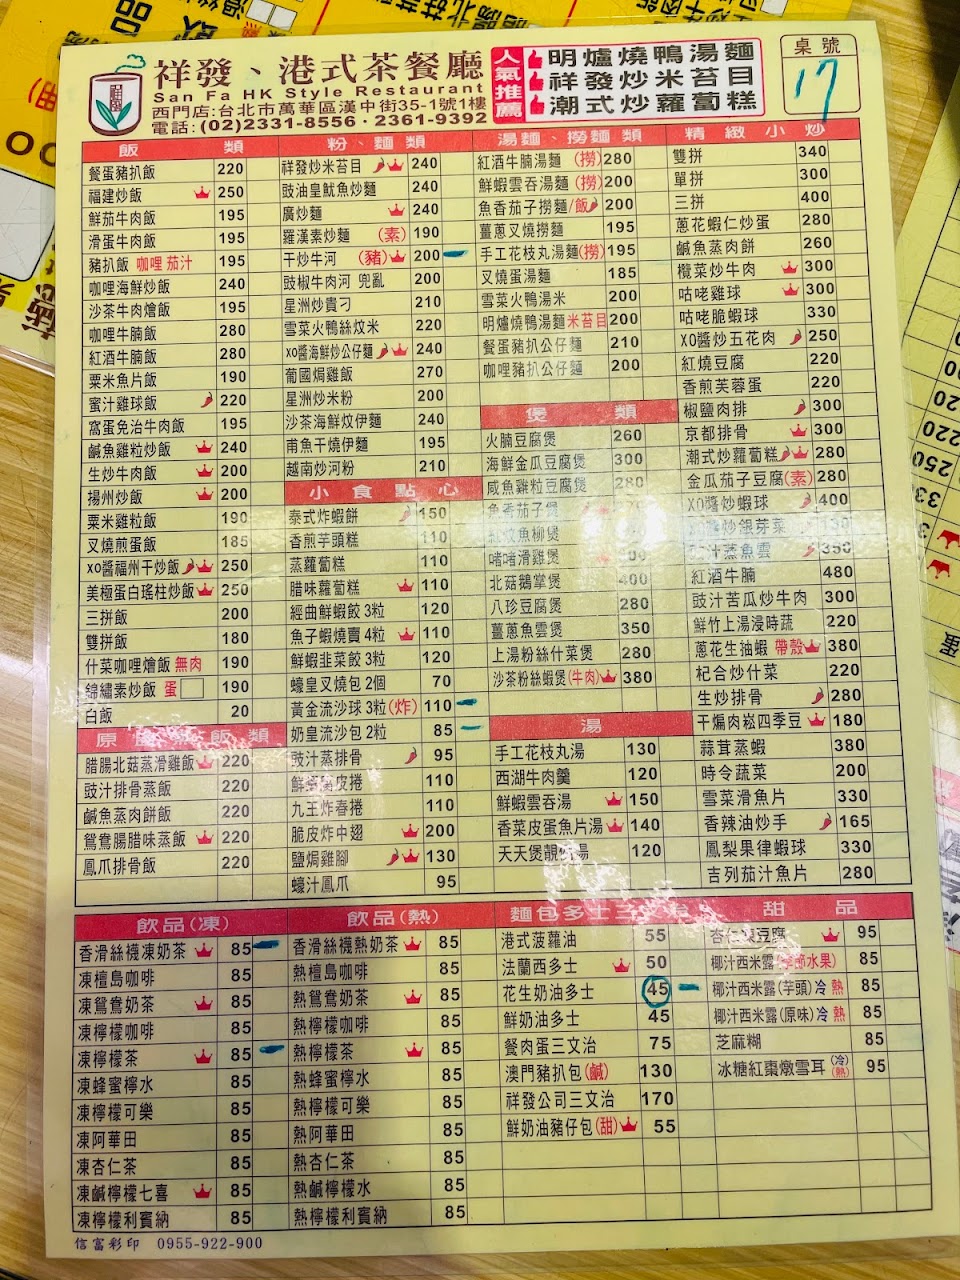 祥發、港式茶餐廳
San Fa HK Style Restaurant
西門店:台北市萬華區漢中街35-1號1樓
電話:(02)2331-8556・2361-9392
人氣推薦
明爐燒鴨湯麵
祥發炒米苔目
潮式炒蘿蔔糕
桌號
17
飯類
餐蛋豬扒飯 220
福建炒飯 250
鮮茄牛肉飯 195
滑蛋牛肉飯 195
豬扒飯 咖哩 茄汁 195
咖哩海鮮炒飯 240
沙茶牛肉燴飯 195
咖哩牛腩飯 280
紅酒牛腩飯 280
粟米魚片飯 190
蜜汁雞球飯 220
窩蛋免治牛肉飯 195
鹹魚雞粒炒飯 240
生炒牛肉飯 200
揚州炒飯 200
粟米雞粒飯 190
叉燒煎蛋飯 185
XO醬福州干炒飯 250
美極蛋白瑤柱炒飯 250
三拼飯 200
雙拼飯 180
什菜咖哩燴飯 無肉 190
錦繡素炒飯 蛋 190
白飯 20
原 飯類
腊腸北菇蒸滑雞飯 220
豉汁排骨蒸飯 220
鹹魚蒸肉餅飯 220
鴛鴦腸腊味蒸飯 220
鳳爪排骨飯 220
粉、麵類
祥發炒米苔目 240
豉油皇魷魚炒麵 240
廣炒麵 240
羅漢素炒麵 (素) 190
干炒牛河 (豬) 200
豉椒牛肉河 兜亂 200
星洲炒貴刁 210
雪菜火鴨絲炆米 220
XO醬海鮮炒公仔麵 240
葡國焗雞飯 270
星洲炒米粉 200
沙茶海鮮炆伊麵 240
甫魚干燒伊麵 195
越南炒河粉 210
小食點心
泰式炸蝦餅 150
香煎芋頭糕 110
蒸蘿蔔糕 110
腊味蘿蔔糕 110
經曲鮮蝦餃 3粒 120
魚子蝦燒賣 4粒 110
鮮蝦韭菜餃 3粒 120
蠔皇叉燒包 2個 70
黃金流沙球 3粒(炸) 110
奶皇流沙包 2粒 85
豉汁蒸排骨 95
鮮蝦腐皮捲 110
九王炸春捲 110
脆皮炸中翅 200
鹽焗雞腳 130
蠔汁鳳爪 95
湯麵、撈麵類
紅酒牛腩湯麵 (撈) 280
鮮蝦雲吞湯麵 (撈) 200
魚香茄子撈麵/飯 200
薑蔥叉燒撈麵 195
手工花枝丸湯麵(撈) 195
叉燒蛋湯麵 185
雪菜火鴨湯米 200
明爐燒鴨湯麵 米苔目 200
餐蛋豬扒公仔麵 210
咖哩豬扒公仔麵 200
煲類
火腩豆腐煲 260
海鮮金瓜豆腐煲 300
咸魚雞粒豆腐煲 280
魚香茄子煲
魚柳煲
啫啫滑雞煲
北菇鵝掌煲 400
八珍豆腐煲 280
薑蔥魚雲煲 350
上湯粉絲什菜煲 280
沙茶粉絲蝦煲(牛肉) 380
湯
手工花枝丸湯 130
西湖牛肉羹 120
鮮蝦雲吞湯 150
香菜皮蛋魚片湯 140
天天煲靚湯 120
精緻小炒
雙拼 340
單拼 300
三拼 400
蔥花蝦仁炒蛋 280
鹹魚蒸肉餅 260
欖菜炒牛肉 300
咕咾雞球 300
咕咾脆蝦球 330
XO醬炒五花肉 250
紅燒豆腐 220
香煎芙蓉蛋 220
椒鹽肉排 300
京都排骨 300
潮式炒蘿蔔糕 280
金瓜茄子豆腐(素) 280
XO醬炒蝦球 400
醬炒銀芽菜 130
豉汁蒸魚雲 350
紅酒牛腩 480
豉汁苦瓜炒牛肉 300
鮮竹上湯浸時蔬 220
蔥花生油蝦 帶殼 380
杞合炒什菜 220
生炒排骨 280
干煸肉崧四季豆 180
蒜茸蒸蝦 380
時令蔬菜 200
雪菜滑魚片 330
香辣油炒手 165
鳳梨果律蝦球 330
吉列茄汁魚片 280
飲品(凍)
香滑絲襪凍奶茶 85
凍檀島咖啡 85
凍鴛鴦奶茶 85
凍檸檬咖啡 85
凍檸檬茶 85
凍蜂蜜檸水 85
凍檸檬可樂 85
凍阿華田 85
凍杏仁茶 85
凍鹹檸檬七喜 85
凍檸檬利賓納 85
飲品(熱)
香滑絲襪熱奶茶 85
熱檀島咖啡 85
熱鴛鴦奶茶 85
熱檸檬咖啡 85
熱檸檬茶 85
熱蜂蜜檸水 85
熱檸檬可樂 85
熱阿華田 85
熱杏仁茶 85
熱鹹檸檬水 85
熱檸檬利賓納 85
麵包多士三
港式菠蘿油 55
法蘭西多士 50
花生奶油多士 45
鮮奶油多士 45
餐肉蛋三文治 75
澳門豬扒包(鹹) 130
祥發公司三文治 170
鮮奶油豬仔包(甜) 55
甜品
杏仁凍豆腐 95
椰汁西米露(季節水果) 85
椰汁西米露(芋頭) 冷 熱 85
椰汁西米露(原味) 冷 熱 85
芝麻糊 85
冰糖紅棗燉雪耳 (冷)(熱) 95
信富彩印 0955-922-900